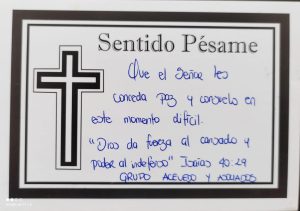 Sentido Pésame
Que el Señor les
conceda Paz y consuelo en
este momento difícil.
"Dios da fuerza al cansado y
poder al indefenso" Isaias 40:29
GRUPO ACEVEDO Y ASOCIADOS